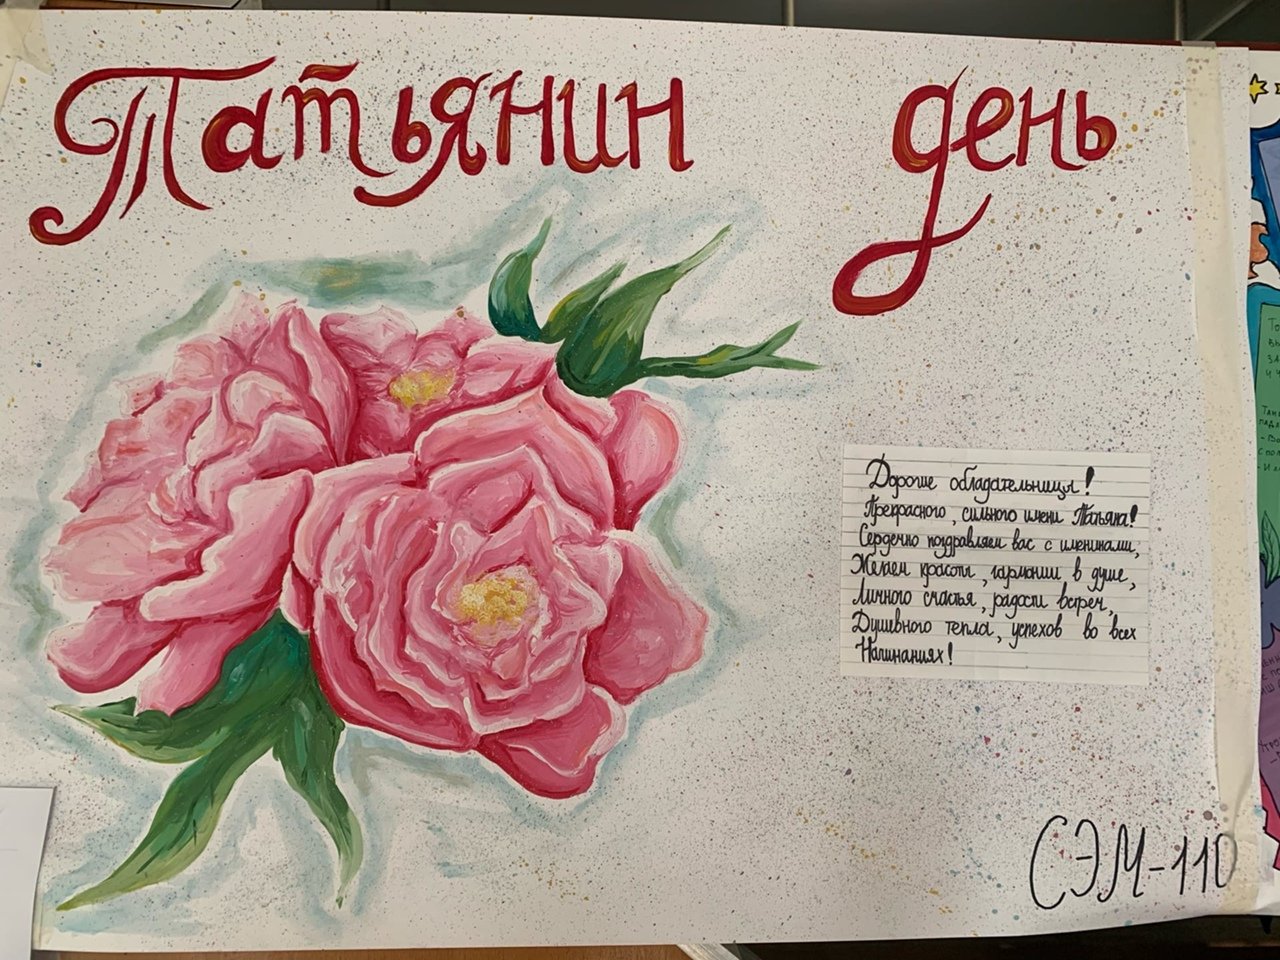 Татьянин день
Дорогие обладательницы!
Прекрасного, сильного имени Татьяна!
Сердечно поздравляем вас с именинами,
Желаем красоты, гармонии в душе,
Личного счастья, радости встреч,
Душевного тепла, успехов во всех
Начинаниях!
СЭМ-110